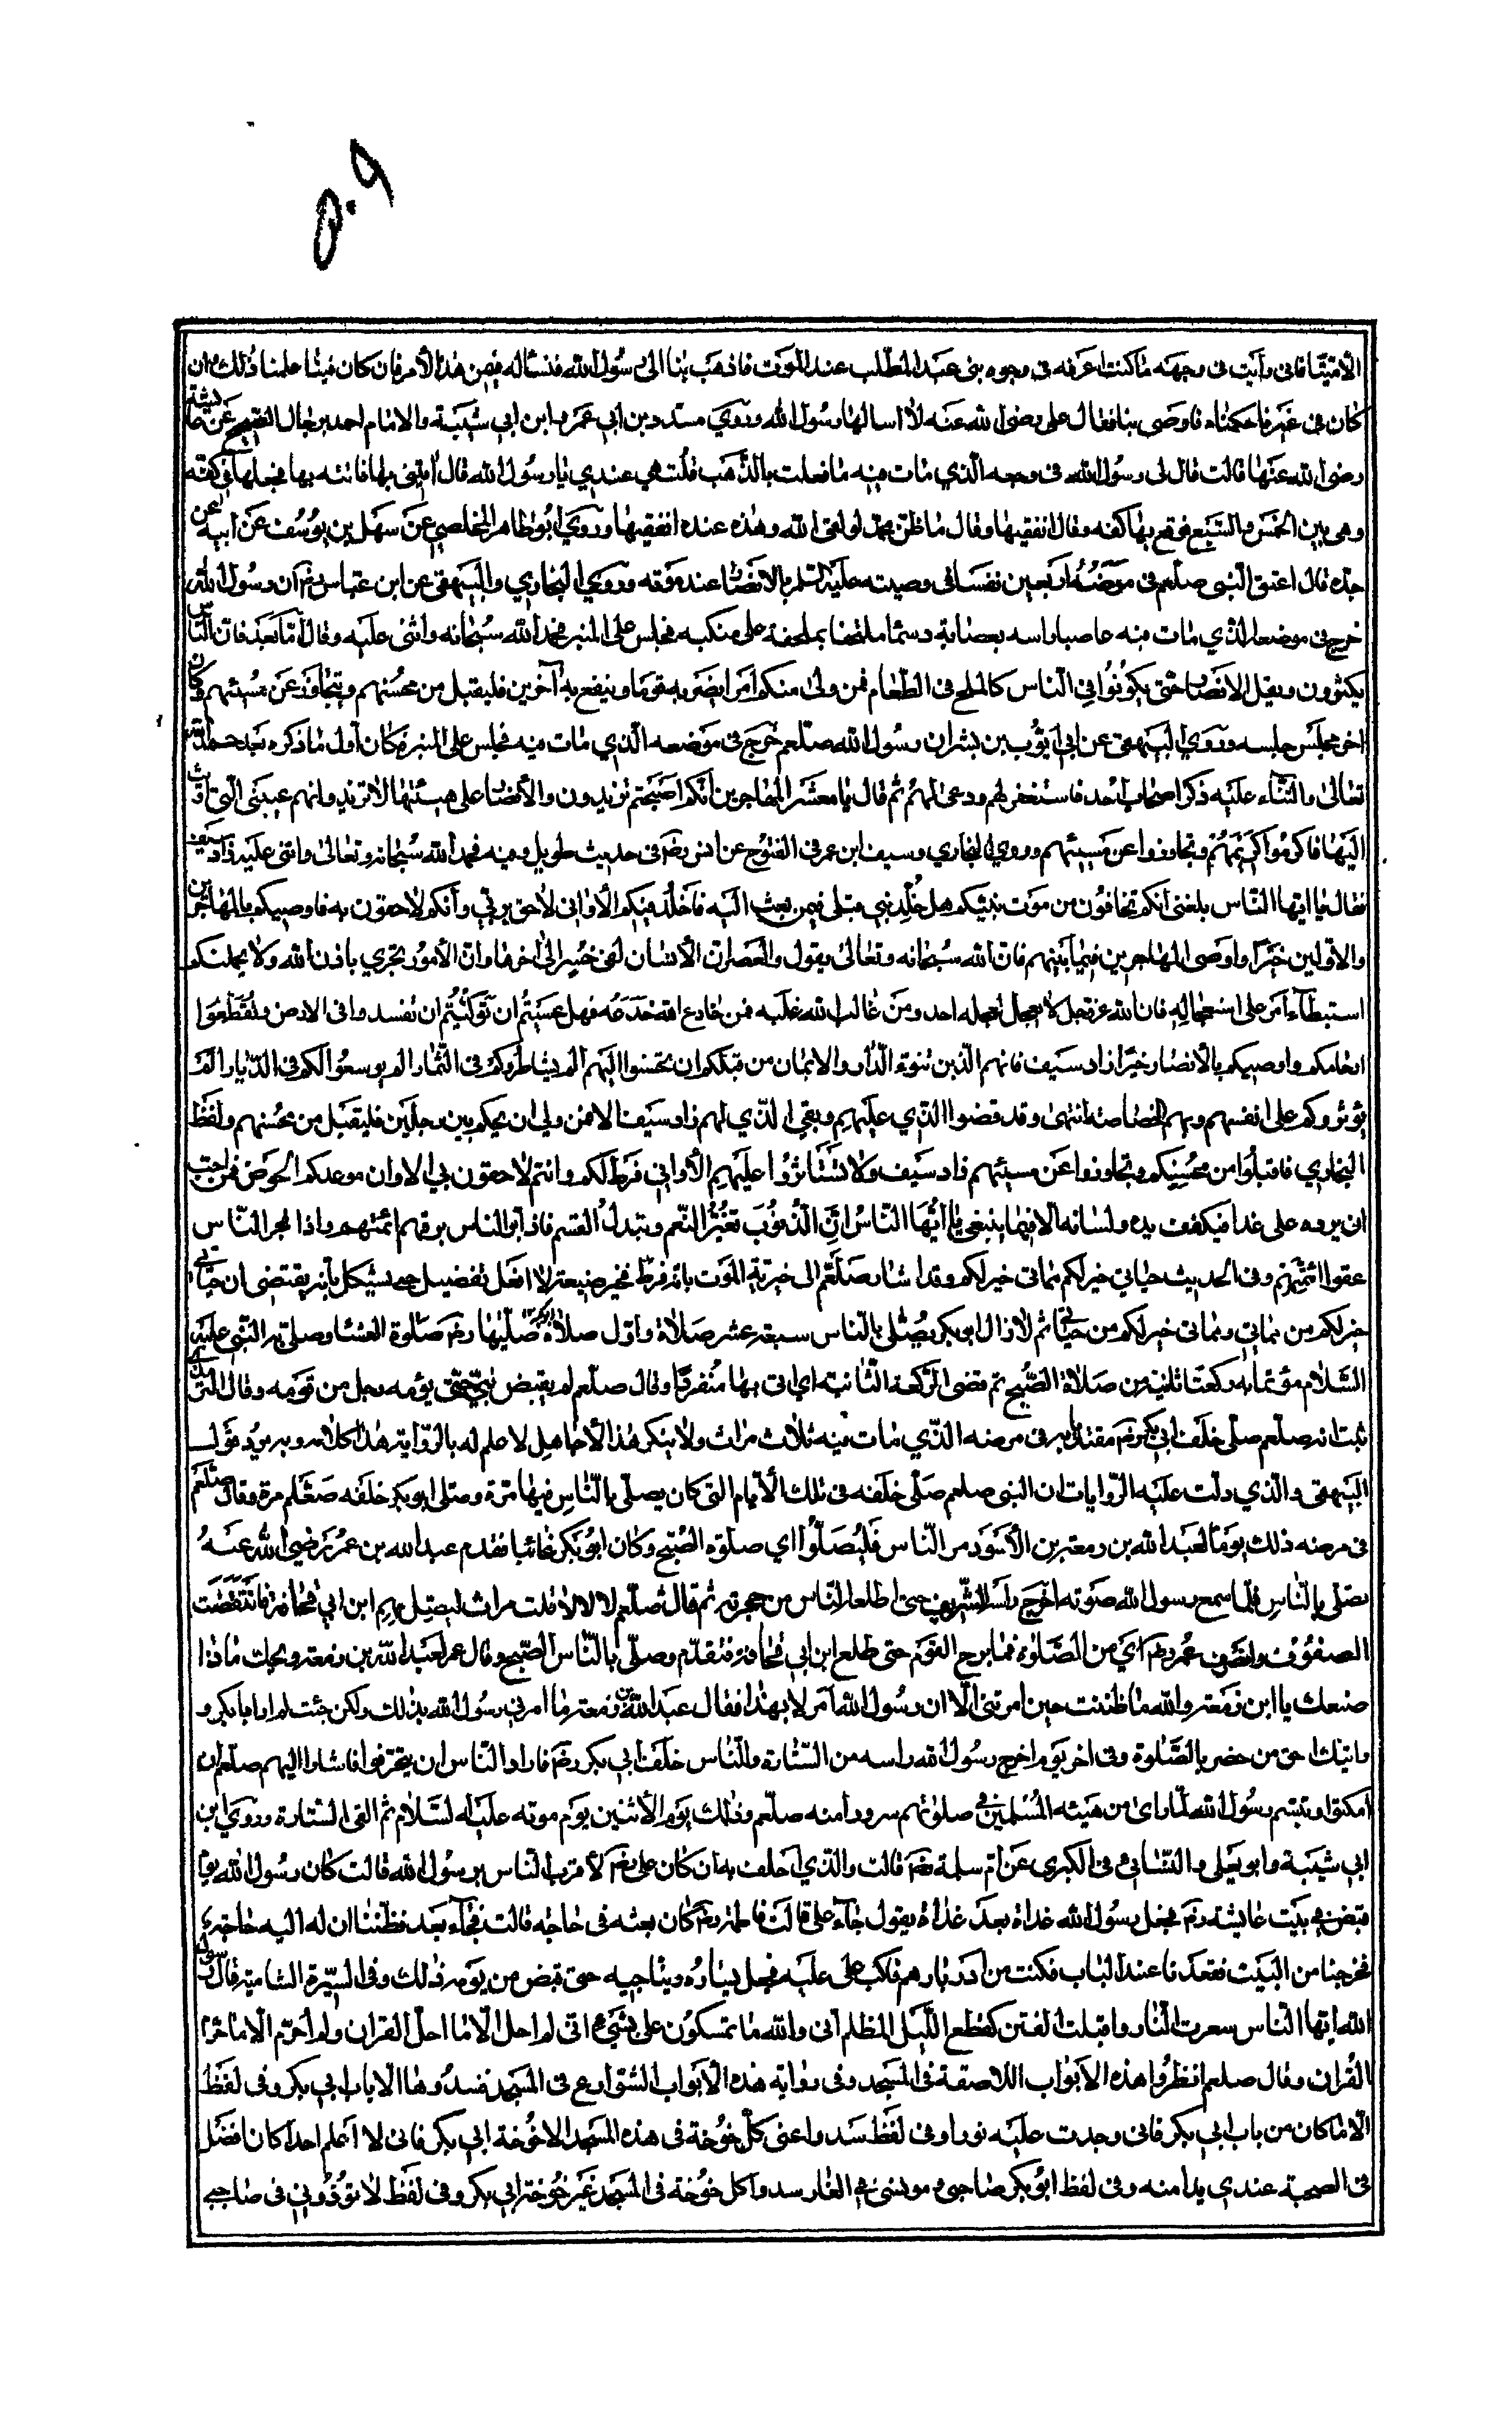 ٥٠٩
الا ميتا فاني رأيت في وجهه ماكنت اعرفه في وجوه بني عبد المطلب عند الموت فاذهب بنا الى رسول الله فنسأله فيمن هذا الأمر فان كان فينا علمنا ذلك وان
كان في غيرنا حكمناه فاوصى بنا فقال علي رضي الله عنه لا اسالها رسول الله وروي مسدد بن ابي عمر وابن ابي شيبة والامام احمد برجال الصحيح عن عائشة
رضي الله عنها قالت قال لي رسول الله في وجعه الذي مات فيه ما فعلت بالذهب قلت هي عندي يا رسول الله قال ائتيني بها فاتته بها فجعلها في كفه
وهي بين الخمس والسبع فرفع بها كفه وقال انفقيها وقال ما ظن محمد لو لقي الله وهذه عنده انفقيها وروي ابو طاهر المخلصي عن سهل بن يوسف عن ابيه عن
جده قال اعتق النبي صلعم في مرضه اربعين نفسا في وصيته عليه السلم بالانصار عند موته وروي البخاري والبيهقي عن ابن عباس رضم ان رسول الله
خرج في مرضه الذي مات فيه عاصبا راسه بعصابة دسما ملتحفا بملحفة على منكبه فجلس على المنبر فحمد الله سبحانه واثنى عليه وقال اما بعد فان الناس
يكثرون ويقل الانصار حتى يكونوا في الناس كالملح في الطعام فمن ولى منكم امرا يضر به قوما وينفع به آخرين فليقبل من محسنهم ويتجاوز عن مسيئهم وكان
اخر مجلس جلسه وروي البيهقي عن ابي ايوب بن بشر ان رسول الله صلعم خرج في مرضه الذي مات فيه فجلس على المنبر فكان اول ما ذكره بعد حمد الله
تعالى والثناء عليه ذكر اصحاب احد فاستغفر لهم ودعى لهم ثم قال يا معشر المهاجرين انكم اصبحتم تزيدون والأنصار على هيئتها لا تزيد وانهم عيبتي التي اويت
اليها فاكرموا كريمهم وتجاوزوا عن مسيئهم وروي البخاري وسيف ابن عمر في الفتوح عن انس رضم في حديث طويل وفيه فحمد الله سبحانه وتعالى واثنى عليه زاد سيف
فقال يا ايها الناس بلغني انكم تخافون من موت نبيكم هل خلد نبي قبلي فيمن بعث اليه فاخلد فيكم الا واني لاحق بربي وانكم لاحقون به فاوصيكم بالمهاجرين
والاولين خيرا واوصى المهاجرين فيما بينهم فان الله سبحانه وتعالى يقول والعصر ان الانسان لفي خسر الى اخرها وان الأمور تجري باذن الله ولا يحملنكم
استبطاء امر على استعجاله فان الله عز وجل لا يعجل لعجله احد ومن غالب الله غلبه فمن خادع الله خدعه فهل عسيتم ان توليتم ان تفسدوا في الارض وتقطعوا
ارحامكم واوصيكم بالأنصار خيرا زاد سيف فانهم الذين تبوء الدار والايمان من قبلكم ان تحسنوا اليهم الم يشاطروكم في الثمار الم يوسعوا لكم في الديار الم
يؤثروكم على انفسهم وبهم الخصاصة انتهى وقد قضوا الذي عليهم وبقي الذي لهم زاد سيف الا فمن ولي ان يحكم بين رجلين فليقبل من محسنهم ولفظ
البخاري فاقبلوا من محسنكم وتجاوزوا عن مسيئهم زاد سيف ولا تستأثروا عليهم الا واني فرط لكم وانتم لاحقون بي الا وان موعدكم الحوض فمن احب
ان يرده علي غدا فيكفف يده ولسانه الا فيما ينبغي يا ايها الناس ان الذنوب تغير النعم وتبدل القسم فاذا بر الناس برتهم ائمتهم واذا فجر الناس
عقوا ائمتهم وفي الحديث حياتي خير لكم ومماتي خير لكم وقد اشار صلعم الى خيرية الموت بانه فرط فخير صيغة لا افعل تفضيل حتى يشكل بانه يقتضي ان حياتي
خير لكم من مماتي ومماتي خير لكم من حياتي ثم لا زال ابو بكر يصلي بالناس سبعة عشر صلاة واول صلاة صليها رضم صلوة العشا وصلى به النبي عليه
السلام مؤتما به ركعة ثانية من صلاة الصبح ثم قضى الركعة الثانية اي اتى بها منفردا وقال صلعم لم يقبض نبي حتى يؤمه رجل من قومه وقال الترمذي
ثبت انه صلعم صلى خلف ابي بكر رضم مقتديا به في مرضه الذي مات فيه ثلاث مرات ولا ينكر هذا الا جاهل لا علم له بالرواية هذا كلامه وبه يرد قول
البيهقي والذي دلت عليه الروايات ان النبي صلعم صلى خلفه في تلك الأيام التي كان يصلي بالناس فيها مرة وصلى ابو بكر خلفه صعلم مرة وقال صلعم
في مرضه ذلك يوما لعبد الله بن زمعة بن الأسود مر الناس فليصلوا اي صلوة الصبح وكان ابو بكر غائبا فقدم عبد الله بن عمر رضي الله عنه
يصلي بالناس فلما سمع رسول الله صوته اخرج راسه الشريف حتى اطلعه الناس من حجرته ثم قال صلعم لا لا لا ثلث مرات ليصل بهم ابن ابي قحافة فانتقضت
الصفوف وانصرف عمر رضم اي من الصلوة فما برح القوم حتى طلع ابن ابي قحافة فتقدم وصلى بالناس الصبح وقال عمر لعبد الله بن زمعة ويحك ماذا
صنعت يا ابن زمعة والله ما ظننت حين امرتني الا ان رسول الله امر لا بهذا فقال عبد الله بن زمعة ما امرني رسول الله بذلك ولكن حيث لم ار ابا بكر و
رايتك احق من حضر بالصلوة وفي اخر يوم اخرج رسول الله راسه من الستارة والناس خلف ابي بكر رضم فاراد الناس ان ينحرفوا فاشار اليهم صلعم ان
امكثوا وتبسم رسول الله لما راى من هيئة المسلمين في صلوتهم سرورا منه صلعم وذلك يوم الاثنين يوم موته عليه السلام ثم القى الستارة وروي ابن
ابي شيبة وابو يعلى والنسائي في الكبرى عن ام سلمة رضم قالت والذي احلف به ان كان علي رضم لأقرب الناس برسول الله قالت كان رسول الله يوم
قبض في بيت عايشة رضم فجعل رسول الله غداة بعد غداة يقول جاء علي قالت فاطمة رضم كان بعثه في حاجة قالت فجاء بعد فظننا ان له اليه حاجة
فخرجنا من البيت فقعدنا عند الباب فكنت من ادناهم فاكب علي عليه فجعل يساره ويناجيه حتى قبض من يومه ذلك وفي السيرة الشامية قال رسول
الله ايها الناس سعرت النار واقبلت الفتن كقطع الليل المظلم اني والله ما تمسكون علي بشيء اني لم احل الا ما احل القران ولم احرم الا ما حرم
القران وقال صلعم انظروا هذه الابواب اللاصقة في المسجد وفي رواية هذه الأبواب الشوارع في المسجد فسدوها الا باب ابي بكر وفي لفظ
الا ما كان من باب ابي بكر فاني وجدت عليه نورا وفي لفظ سدوا عني كل خوخة في هذه المسجد الا خوخة ابي بكر فاني لا اعلم احدا كان افضل
في الصحبة عندي يدا منه وفي لفظ ابو بكر صاحبي ومونسي في الغار سدوا كل خوخة في المسجد غير خوخة ابي بكر وفي لفظ لا تؤذوني في صاحبي